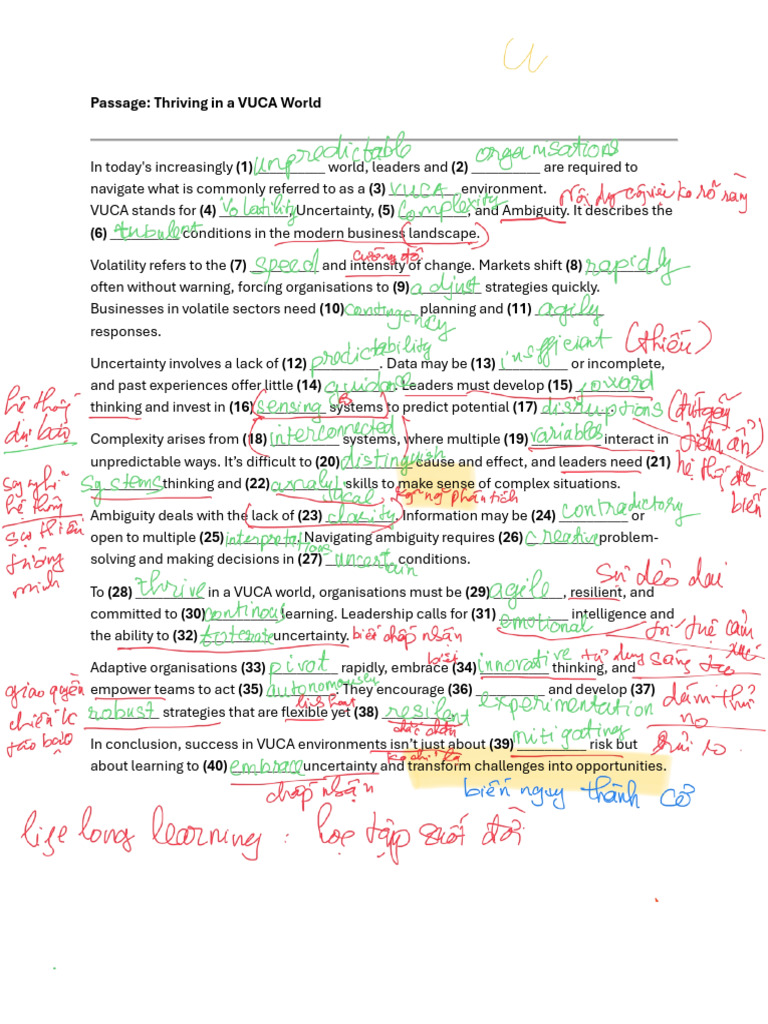 Passage: Thriving in a VUCA World
In today's increasingly (1) unpredictable world, leaders and (2) organisations are required to
navigate what is commonly referred to as a (3) VUCA environment.
Nói dự có việc ko rõ ràng
VUCA stands for (4) Volatility, Uncertainty, (5) Complexity, and Ambiguity. It describes the
(6) tubulent conditions in the modern business landscape.
cường độ
Volatility refers to the (7) speed and intensity of change. Markets shift (8) rapidly
often without warning, forcing organisations to (9) adjust strategies quickly.
Businesses in volatile sectors need (10) contingency planning and (11) agily
responses.
Uncertainty involves a lack of (12) predictability. Data may be (13) insfficient or incomplete,
(thiếu)
and past experiences offer little (14) guidance. Leaders must develop (15) forward
thinking and invest in (16) sensing systems to predict potential (17) disruptions.
hệ thống
dự báo
(đứt gãy
tiềm ẩn)
Complexity arises from (18) interconnected systems, where multiple (19) variables interact in
unpredictable ways. It's difficult to (20) distinguish cause and effect, and leaders need (21)
hệ thố đa
biến
systems thinking and (22) analytical skills to make sense of complex situations.
suy nghĩ
hệ thống
kỹ năng phân tích
Ambiguity deals with the lack of (23) clarity. Information may be (24) contradictory or
sự thiếu
tường
minh
open to multiple (25) interpretations. Navigating ambiguity requires (26) creative problem-
solving and making decisions in (27) uncertain conditions.
To (28) thrive in a VUCA world, organisations must be (29) agile, resilient, and
Sự dẻo dai
committed to (30) continous learning. Leadership calls for (31) emotional intelligence and
trí tuệ cảm
xúc
the ability to (32) toterate uncertainty.
biết chấp nhận
Adaptive organisations (33) pivot rapidly, embrace (34) innovative thinking, and
biết
tư duy sáng tạo
empower teams to act (35) autonomously. They encourage (36) experimentation and develop (37)
giao quyền
chiến lc
táo bạo
linh hoạt
dám thử
no
rủi ro
robust strategies that are flexible yet (38) resilent
In conclusion, success in VUCA environments isn't just about (39) mitigating risk but
ko chỉ là
about learning to (40) embrace uncertainty and transform challenges into opportunities.
chấp nhận
biến nguy thành cơ
life long learning : học tập suốt đời